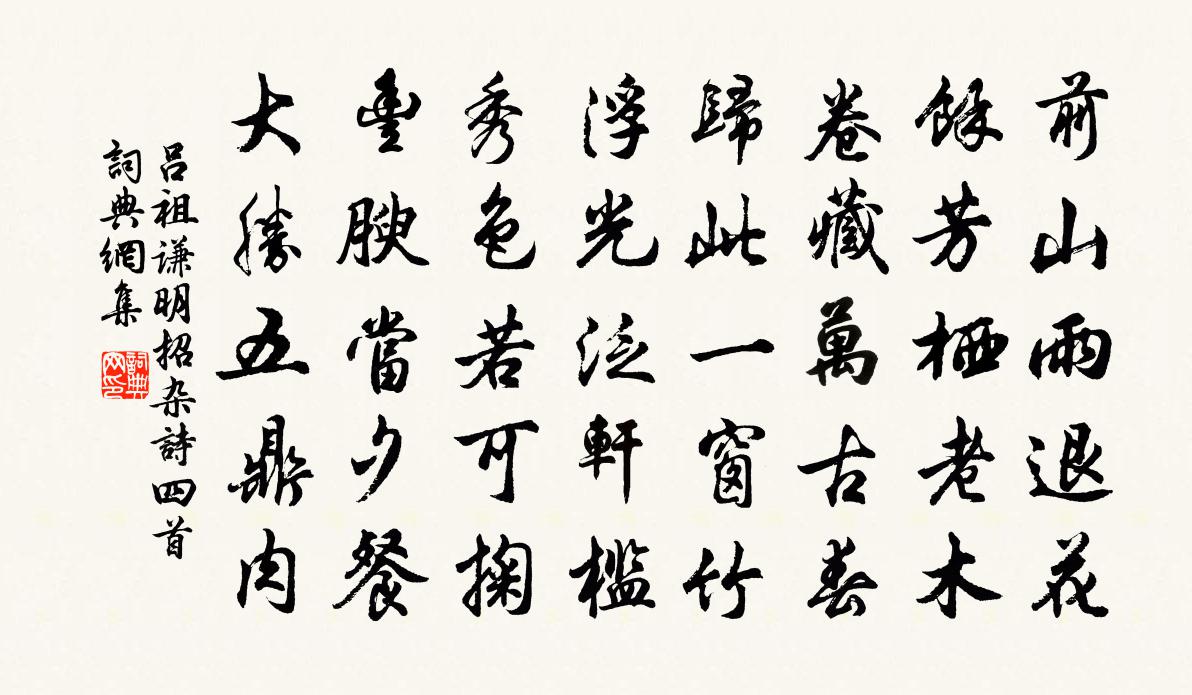 前山雨退花
餘芳栖老木
卷藏萬古春
歸此一窗竹
浮光泛軒檻
秀色若可掬
豐腴當夕餐
大勝五鼎肉
吕祖谦明招杂詩四首
詞典網集
詞典网印